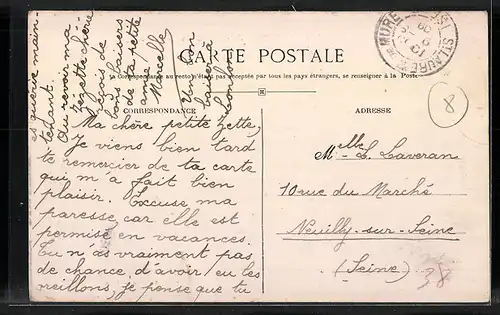 CARTE POSTALE
La Correspondance au recto n'est pas acceptée par tous les pays étrangers, se renseigner à la Poste
CORRESPONDANCE
ADRESSE
Ma chère petite Zette,
Je viens bien tard
te remercier de ta carte
qui m'a fait bien
plaisir. Excuse ma
paresse, car elle est
permise en vacances.
Tu n'as vraiment pas
de chance, d'avoir eu les
oreillons, je pense que tu
es guérie main-
tenant.
Au revoir ma
Zezette chérie
reçois de
bons baisers
de ta petite
amie
Marcelle
Un bon
baiser à
Mlle L. Laveran
10 rue du Marché
Neuilly-sur-Seine
(Seine)
8
38